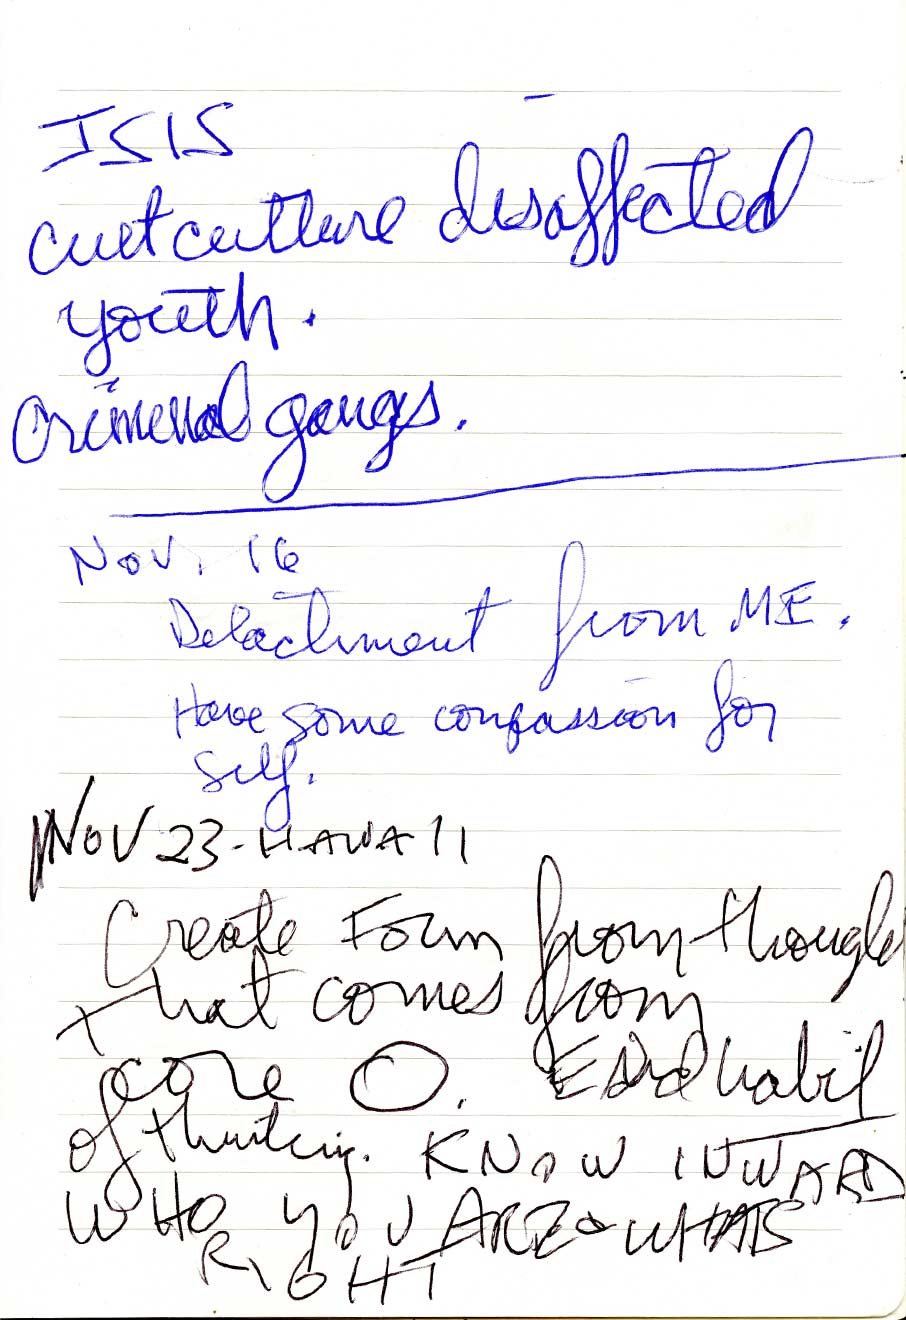 ISIS
cult culture disaffected
youth.
Criminal gangs.
Nov. 16
Detachment from ME.
Have some compassion for
self.
NOV 23-HAWAII
Create Form from thought
that comes from
core O. End habit
of thinking. KNOW INWARD
WHO YOU ARE & WHATS
RIGHT